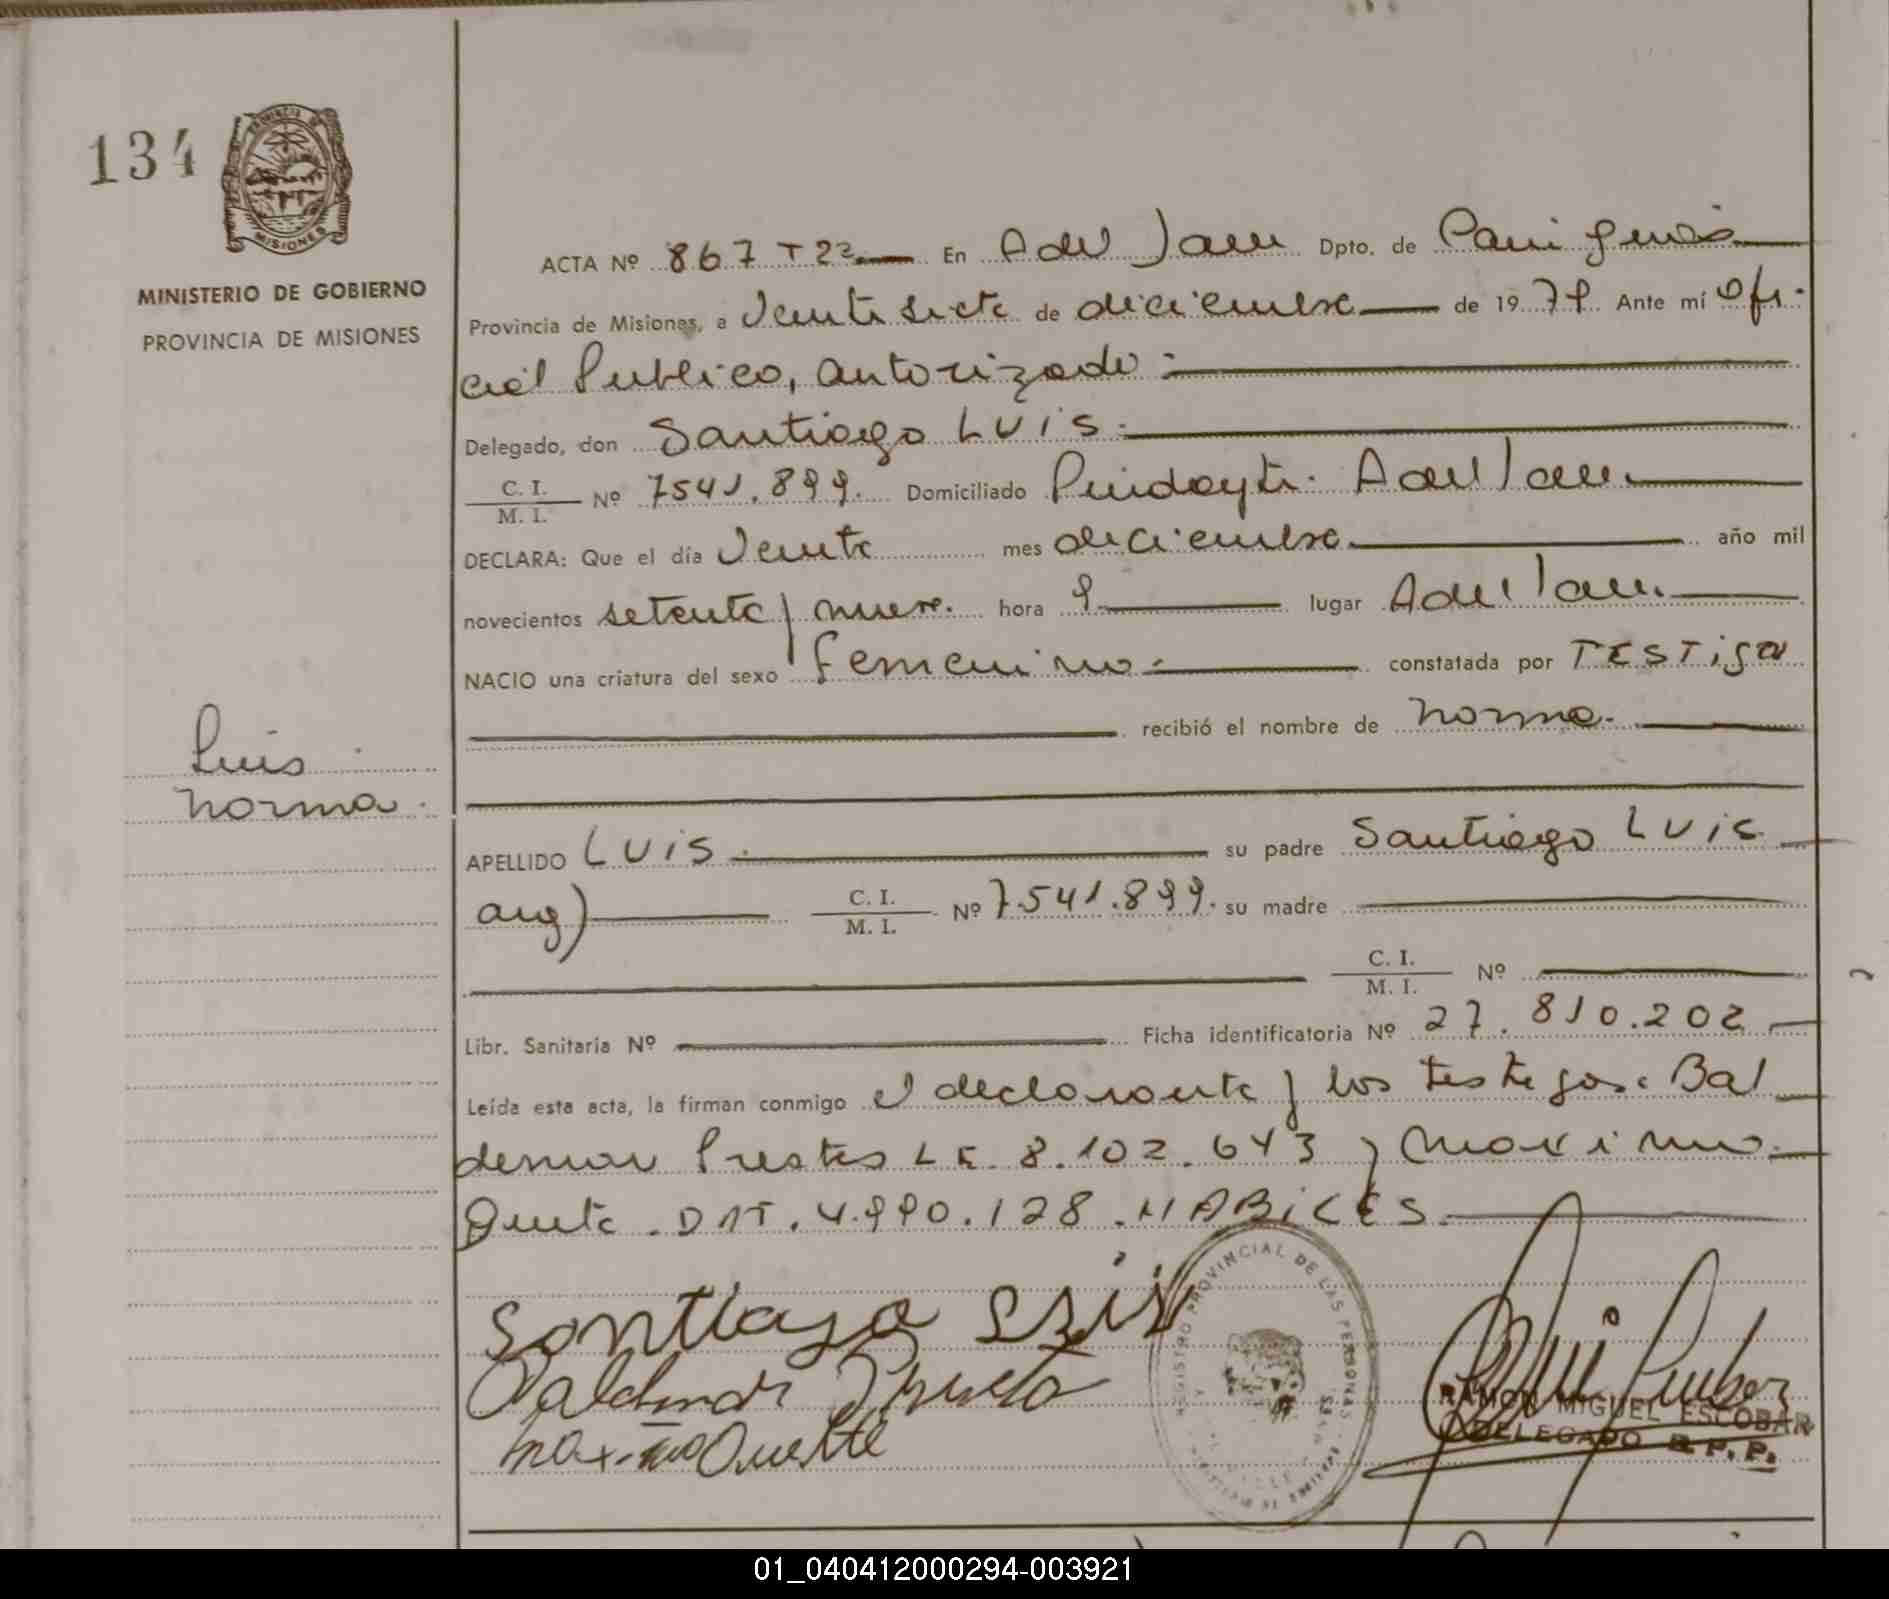 134
PROVINCIA DE
MISIONES
MINISTERIO DE GOBIERNO
PROVINCIA DE MISIONES
Luis
Norma.
ACTA Nº 867 T 2º En Dpto. de
Provincia de Misiones, a Veinte siete de diciembre de 1979 Ante mí Ofi-
cial Publico, autorizado:
Delegado, don Santiago LUIS.
C. I. / M. I. Nº 7541.899. Domiciliado Pindayti.
DECLARA: Que el día Veinte mes diciembre año mil
novecientos setenta y nueve. hora 9 lugar
NACIO una criatura del sexo femenino. constatada por TESTigo
recibió el nombre de Norma.
APELLIDO LUIS. su padre Santiago LUIS
arg) C. I. / M. I. Nº 7.541.899. su madre
C. I. / M. I. Nº
Libr. Sanitaria Nº Ficha identificatoria Nº 27.810.202
Leída esta acta, la firman conmigo el declarante y los testigos: Bal
demar Prestes LE. 8.102.643 y Maximo
Duarte. DNI. 4.990.128. HABiLES.
Santiago Luis
REGISTRO PROVINCIAL DE LAS PERSONAS
RAMON MIGUEL ESCOBAR
DELEGADO R. P. P.
01_040412000294-003921